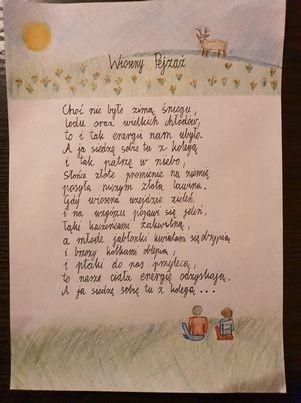 Wiosenny Pejzaż
Choć nie było zimą śniegu,
lodu oraz wielkich chłodów,
to i tak energii nam ubyło.
A ja siedzę sobie tu z kolegą
i tak patrzę w niebo,
Słońce złote promienie na ziemię
posyła niczym złotą lawinę.
Gdy wiosenna wzejdzie zieleń
i na wzgórzu pojawi się jeleń,
Łąki kaczeńcami zakwitną,
a młode jabłonki kwiatami się
i brzozy kotkami oblepią,
i ptaki do nas przylecą,
to nasze ciała energię odzyskają.
A ja siedzę sobie tu z kolegą ...